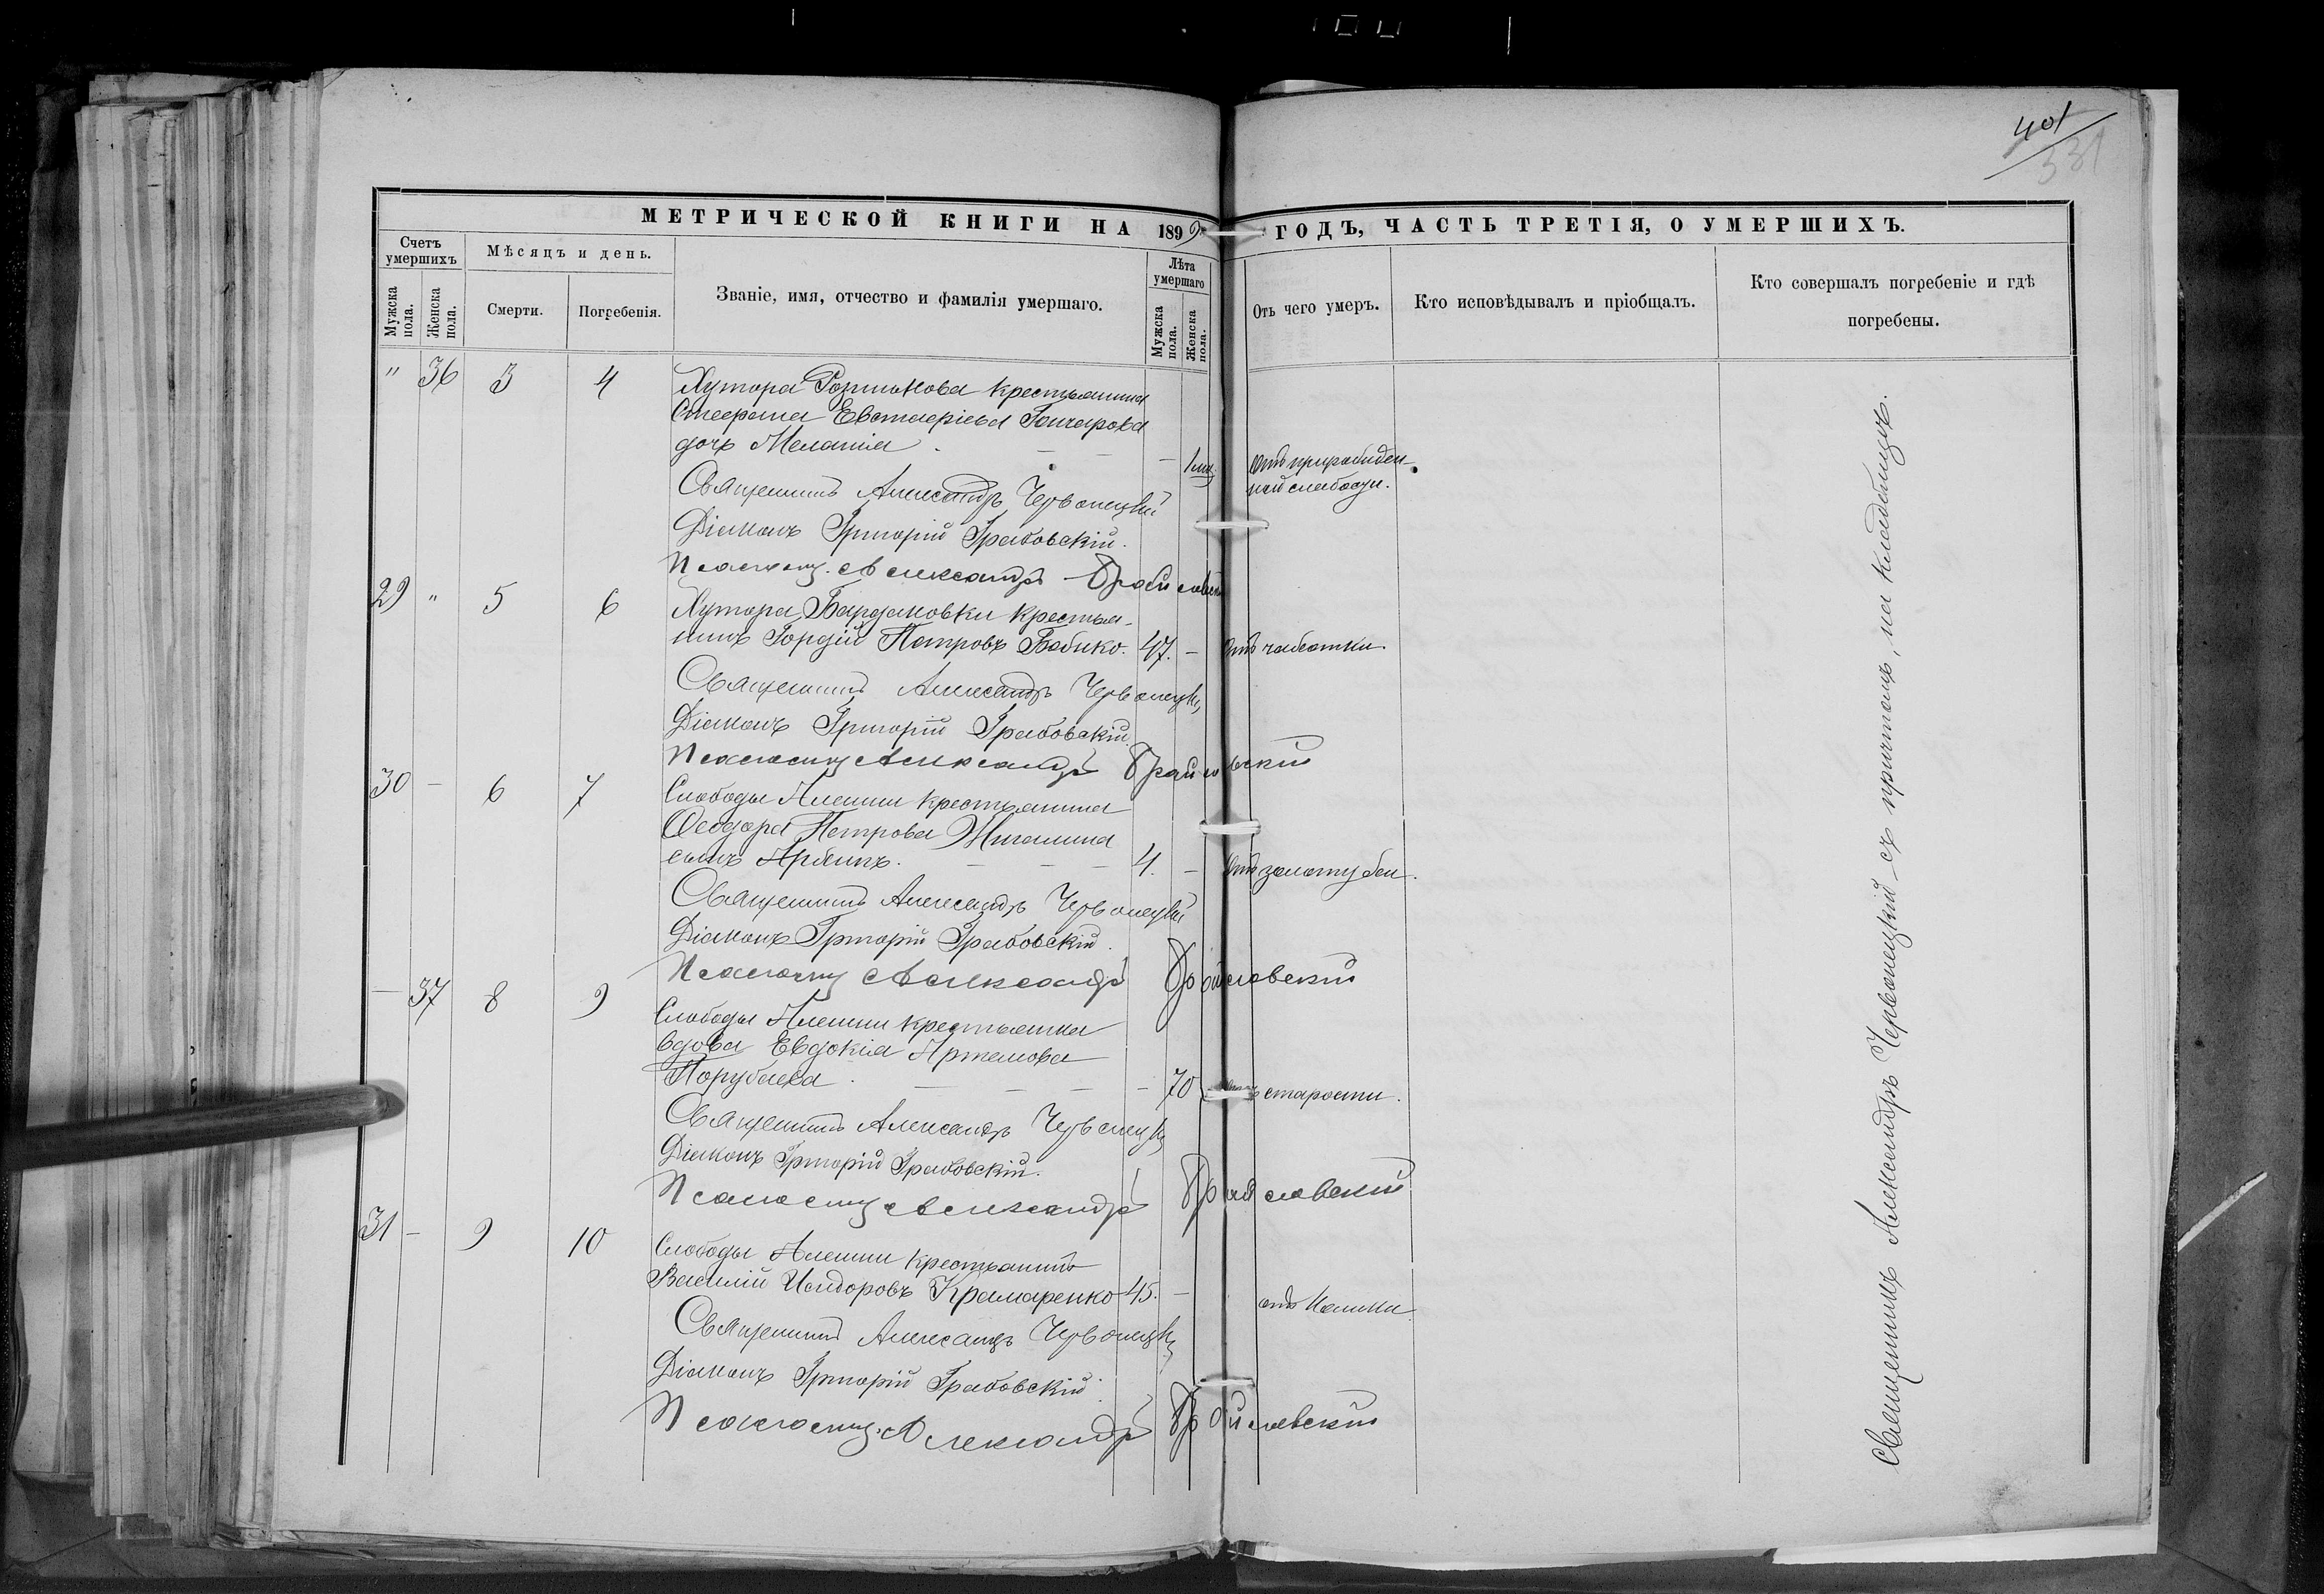 401
331
МЕТРИЧЕСКОЙ КНИГИ НА 1899 ГОДЪ, ЧАСТЬ ТРЕТІЯ, О УМЕРШИХЪ.
Счетъ умершихъ
Мужска пола.
Женска пола.
Мѣсяцъ и день.
Смерти.
Погребенія.
Званіе, имя, отчество и фамилія умершаго.
Лѣта умершаго
Мужска пола.
Женска пола.
Отъ чего умеръ.
Кто исповѣдывалъ и пріобщалъ.
Кто совершалъ погребеніе и гдѣ погребены.
" 36 3 4 Хутора крестьянина
Стефана Евстафіева Гончарова
дочь Меланія - - - 1 мѣс.
Отъ
ной слабости.
Священникъ Александръ Червонецкій
Діаконъ Григорій Грабовскій.
Псаломщ. Александръ
29 " 5 6 Хутора Бардаковки крестья-
нинъ Гордій Петровъ Бабико. 47. - Отъ чахотки.
Священникъ Александръ Червонецкій
Діаконъ Григорій Грабовскій
Псаломщ Александръ
30 - 6 7 Слободы Алешки крестьянина
Ѳеодора Петрова Жигалина
сынъ - - - 4. - Отъ золотухи.
Священникъ Александръ Червонецкій
Діаконъ Григорій Грабовскій.
Псаломщ Александръ
- 37 8 9 Слободы Алешки крестьянка
вдова Евдокія Артемова
Порубаева - - - - 70 старости.
Священникъ Александръ Червонецкій
Діаконъ Григорій Грабовскій.
Псаломщ Александръ
31 - 9 10 Слободы Алешки крестьянинъ
Василій Исидоровъ Крамаренко 45. - отъ
Священникъ Александръ Червонецкій
Діаконъ Григорій Грабовскій.
Псаломщ. Александръ
Священникъ Александръ Червонецкій съ причтомъ, на кладбищѣ.